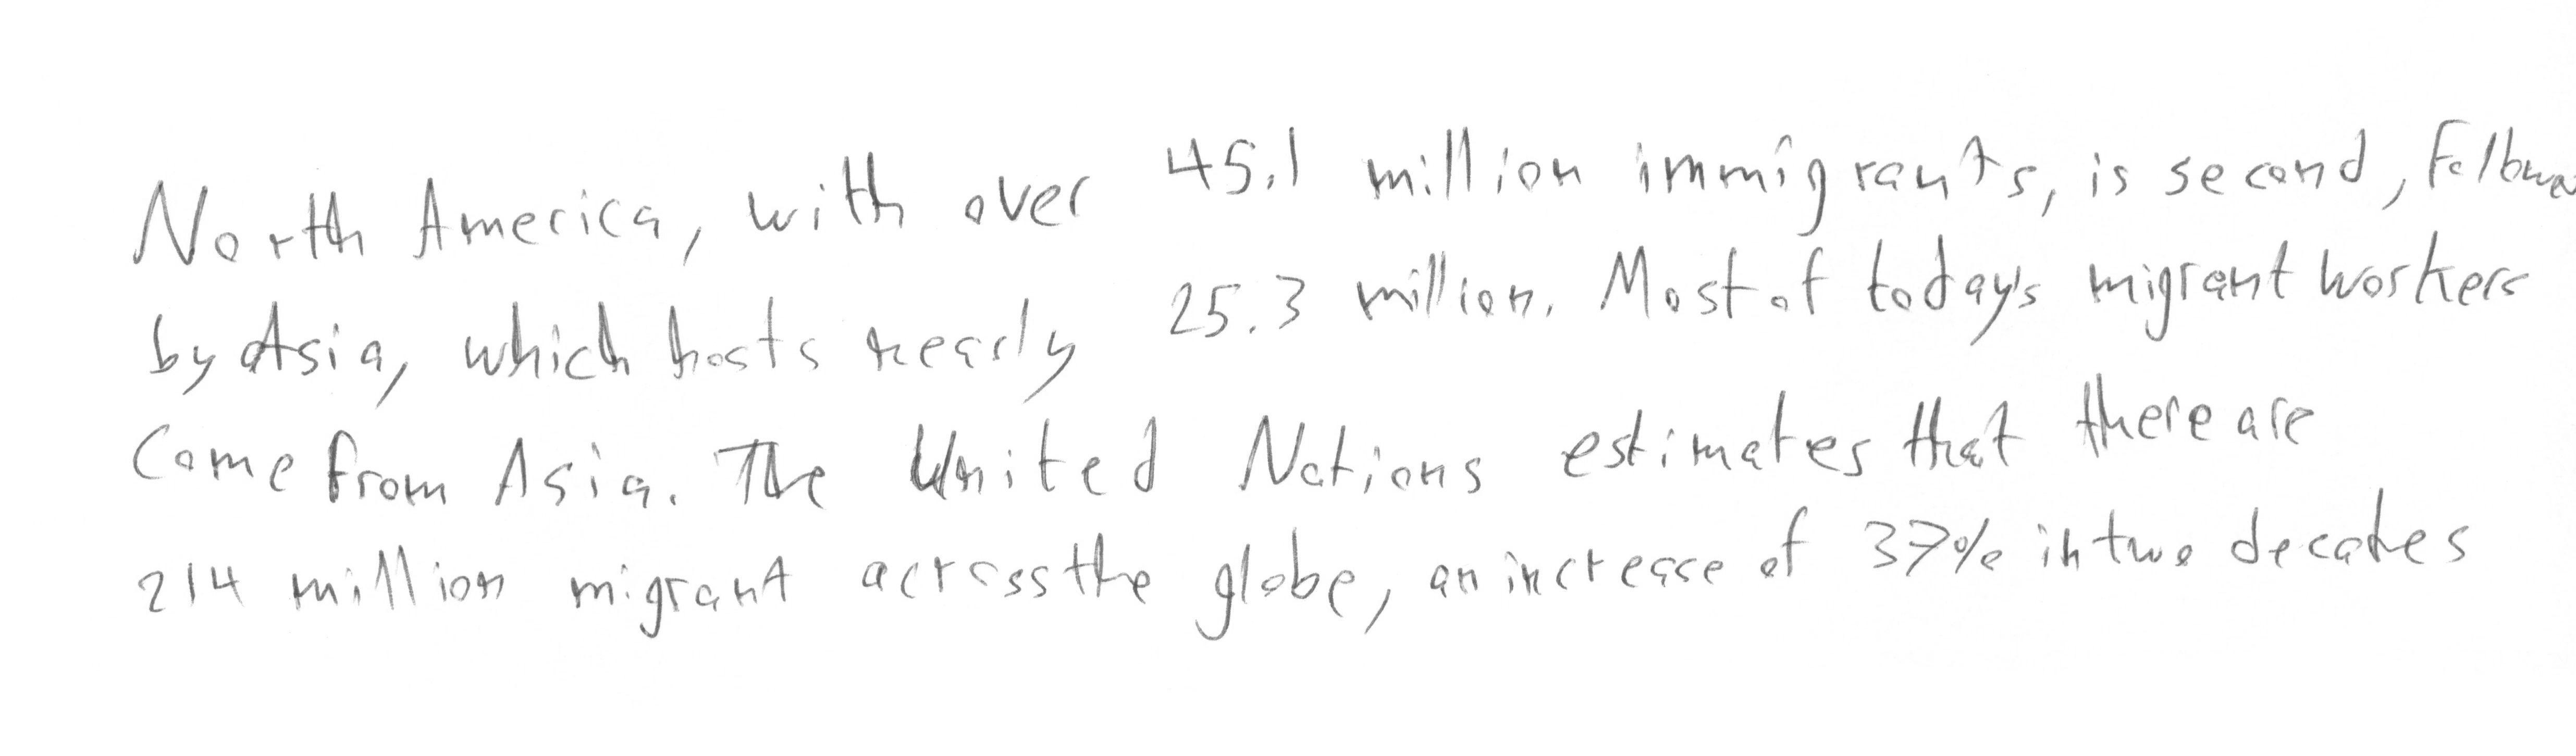 North America, with over 45.1 million immigrants, is second, followe
by Asia, which hosts nearly 25.3 million. Most of today's migrant workers
come from Asia. The United Nations estimates that there are
214 million migrant across the globe, an increase of 37% in two decades